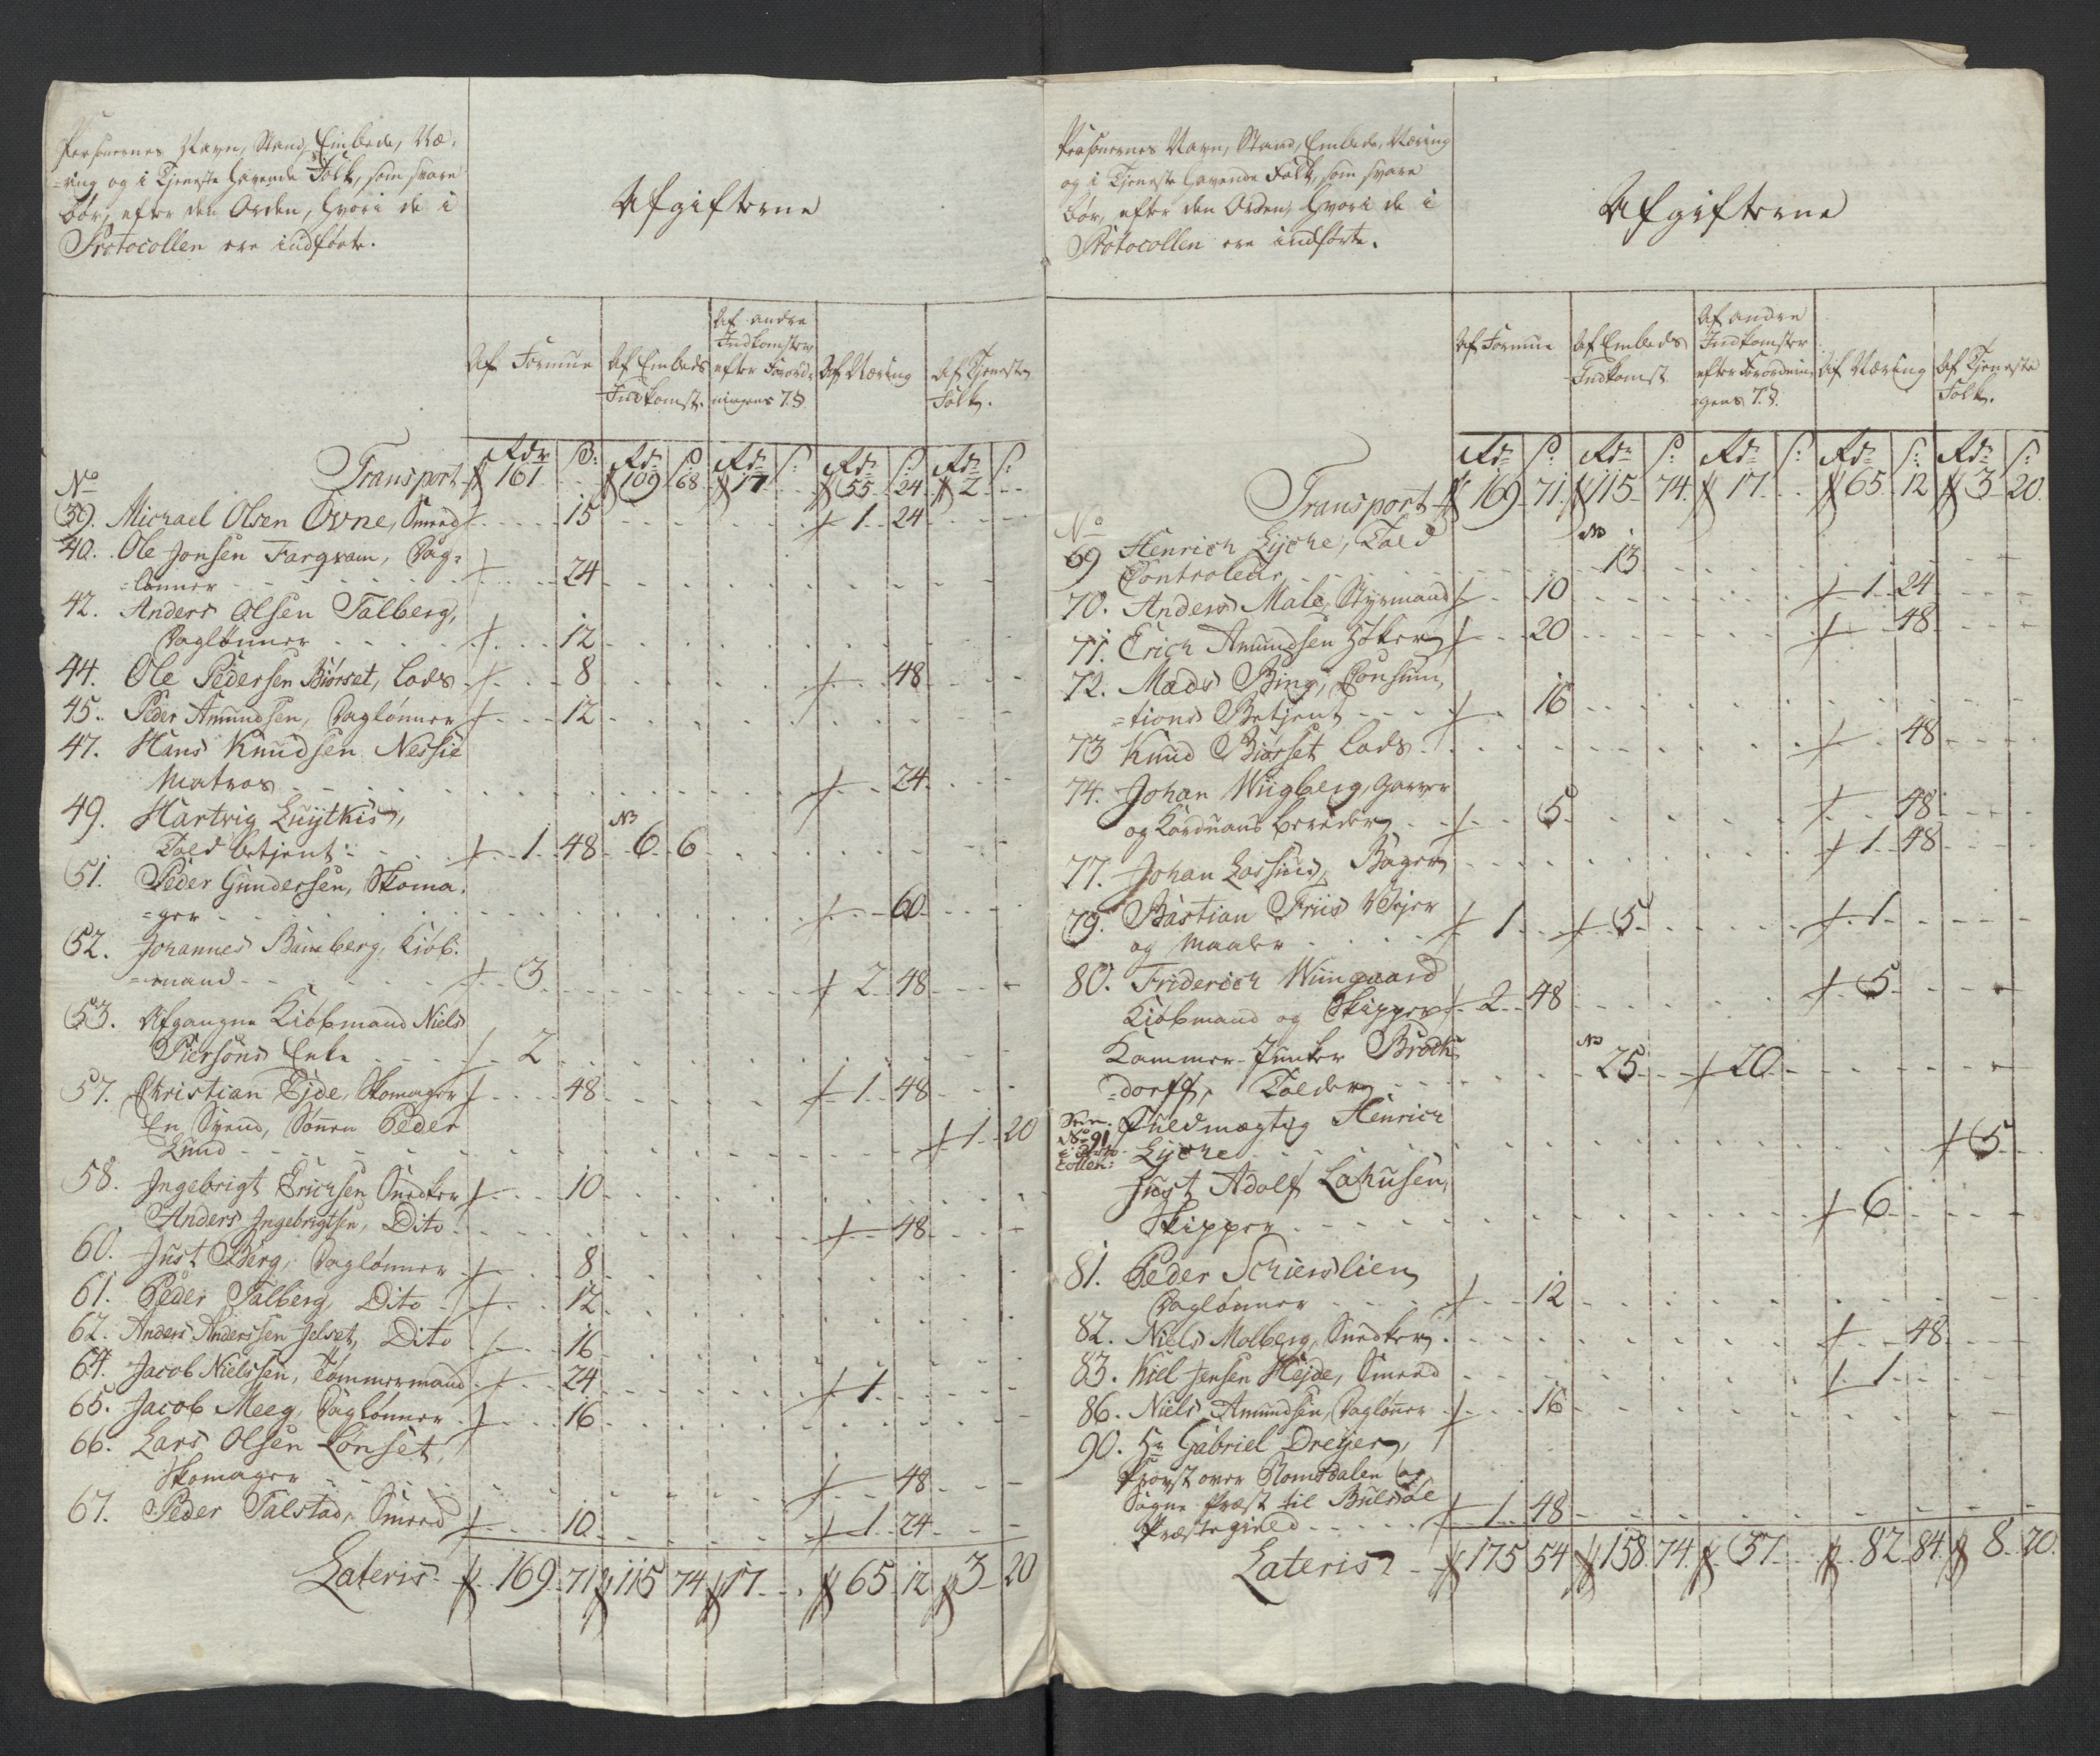 Personernes Navn, Stand, Embede, Næ-
=ring og i Tjeneste havende Folk, som svare
bør, efter den Orden, hvori de i
Protocollen ere indførte.
Afgifterne
Af Formue
Af Embeds Indkomst.
Af andre Indkomster efter Forord- ningens 7. §.
Af Næring
Af Tjeneste Folk.
Rdr ß: Rdr ß Rdr ß: Rdr ß: Rdr ß:
No Transport 161 109 68 17 55 24 2
39. Michael Olsen Ovne, Smed 15 1 24
40. Ole Jonsen Fargvam, Dag-
=lønner 24
42. Anders Olsen Talberg,
Daglønner 12
44. Ole Pedersen Biørset, Lods 8 48
45. Peder Amundsen, Daglønner 12
47. Hans Knudsen Nessie
Matros 24
49. Hartvig Luytkis,
Told betjent 1 48 6 6
51. Peder Gundersen, Skoma-
=ger 60
52. Johannes Bamberg, Kiøb-
=mand 3 2 48
53. Afgangne Kiøbmand Niels
Piersons Enke 2
57. Christian Ejde, Skomager 48 1 48
En Svend, Sønnen Peder
Lund 1 20
58. Ingebrigt Erichsen Snedker 10
Anders Ingebrigtsen, Dito 48
60. Just Berg, Daglønner 8
61. Peder Talberg, Dito 12
62. Anders Anderssen Jelset, Dito 16
64. Jacob Nielssen, Tømmermand 24 1
65. Jacob Meeg, Daglønner 16
66. Lars Olsen Lønset,
Skomager 48
67. Peder Talstad, Smed 10 1 24
Lateris 169 71 115 74 17 65 12 3 20
Personernes Navn, Stand, Embede, Næring
og i Tjeneste havende Folk, som svare
bør, efter den Orden, hvori de i
Protocollen ere indførte.
Afgifterne
Af Formue
Af Embeds Indkomst
Af andre Indkomster efter Forordnin- gens 7. §.
Af Næring
Af Tjeneste Folk.
Rdr ß: Rdr ß: Rdr ß: Rdr ß: Rdr ß:
Transport 169 71 115 74 17 65 12 3 20
No
69 Henrich Lyche, Told
Controleur 13
70. Anders Male, Styrmand 10 1 24
71. Erich Amundsen Høker 20 48
72. Mads Bing, Consum,
=tions Betjent 16
73 Knud Biørset Lods 48
74. Johan Wiigberg, Garver
og Korduans bereder 5 48
77. Johan Lossius, Bager 1 48
79. Bastian Friis Vejer
og Maaler 1 5 1
80. Friderich Wiingaard
Kiøbmand og Skipper 2 48 5
Kammer-Junker Brock
=dorff, Tolder 25 20
No 91
Fuldmægtig Henrich
Lyche 5
Just Adolf Lahusen,
Skipper 6
81. Peder Schierslien
Daglønner 12
82. Niels Molberg, Snedker 48
83. Kiel Jensen Hejde, Smed 1
86. Niels Amundsen, Daglønner 16
90. Hr Gabriel Dreyer,
Provst over Romsdalen og
Sogne Præst til Bulsøe
Præstegield 1 48
Lateris 175 54 158 74 37 82 84 8 20